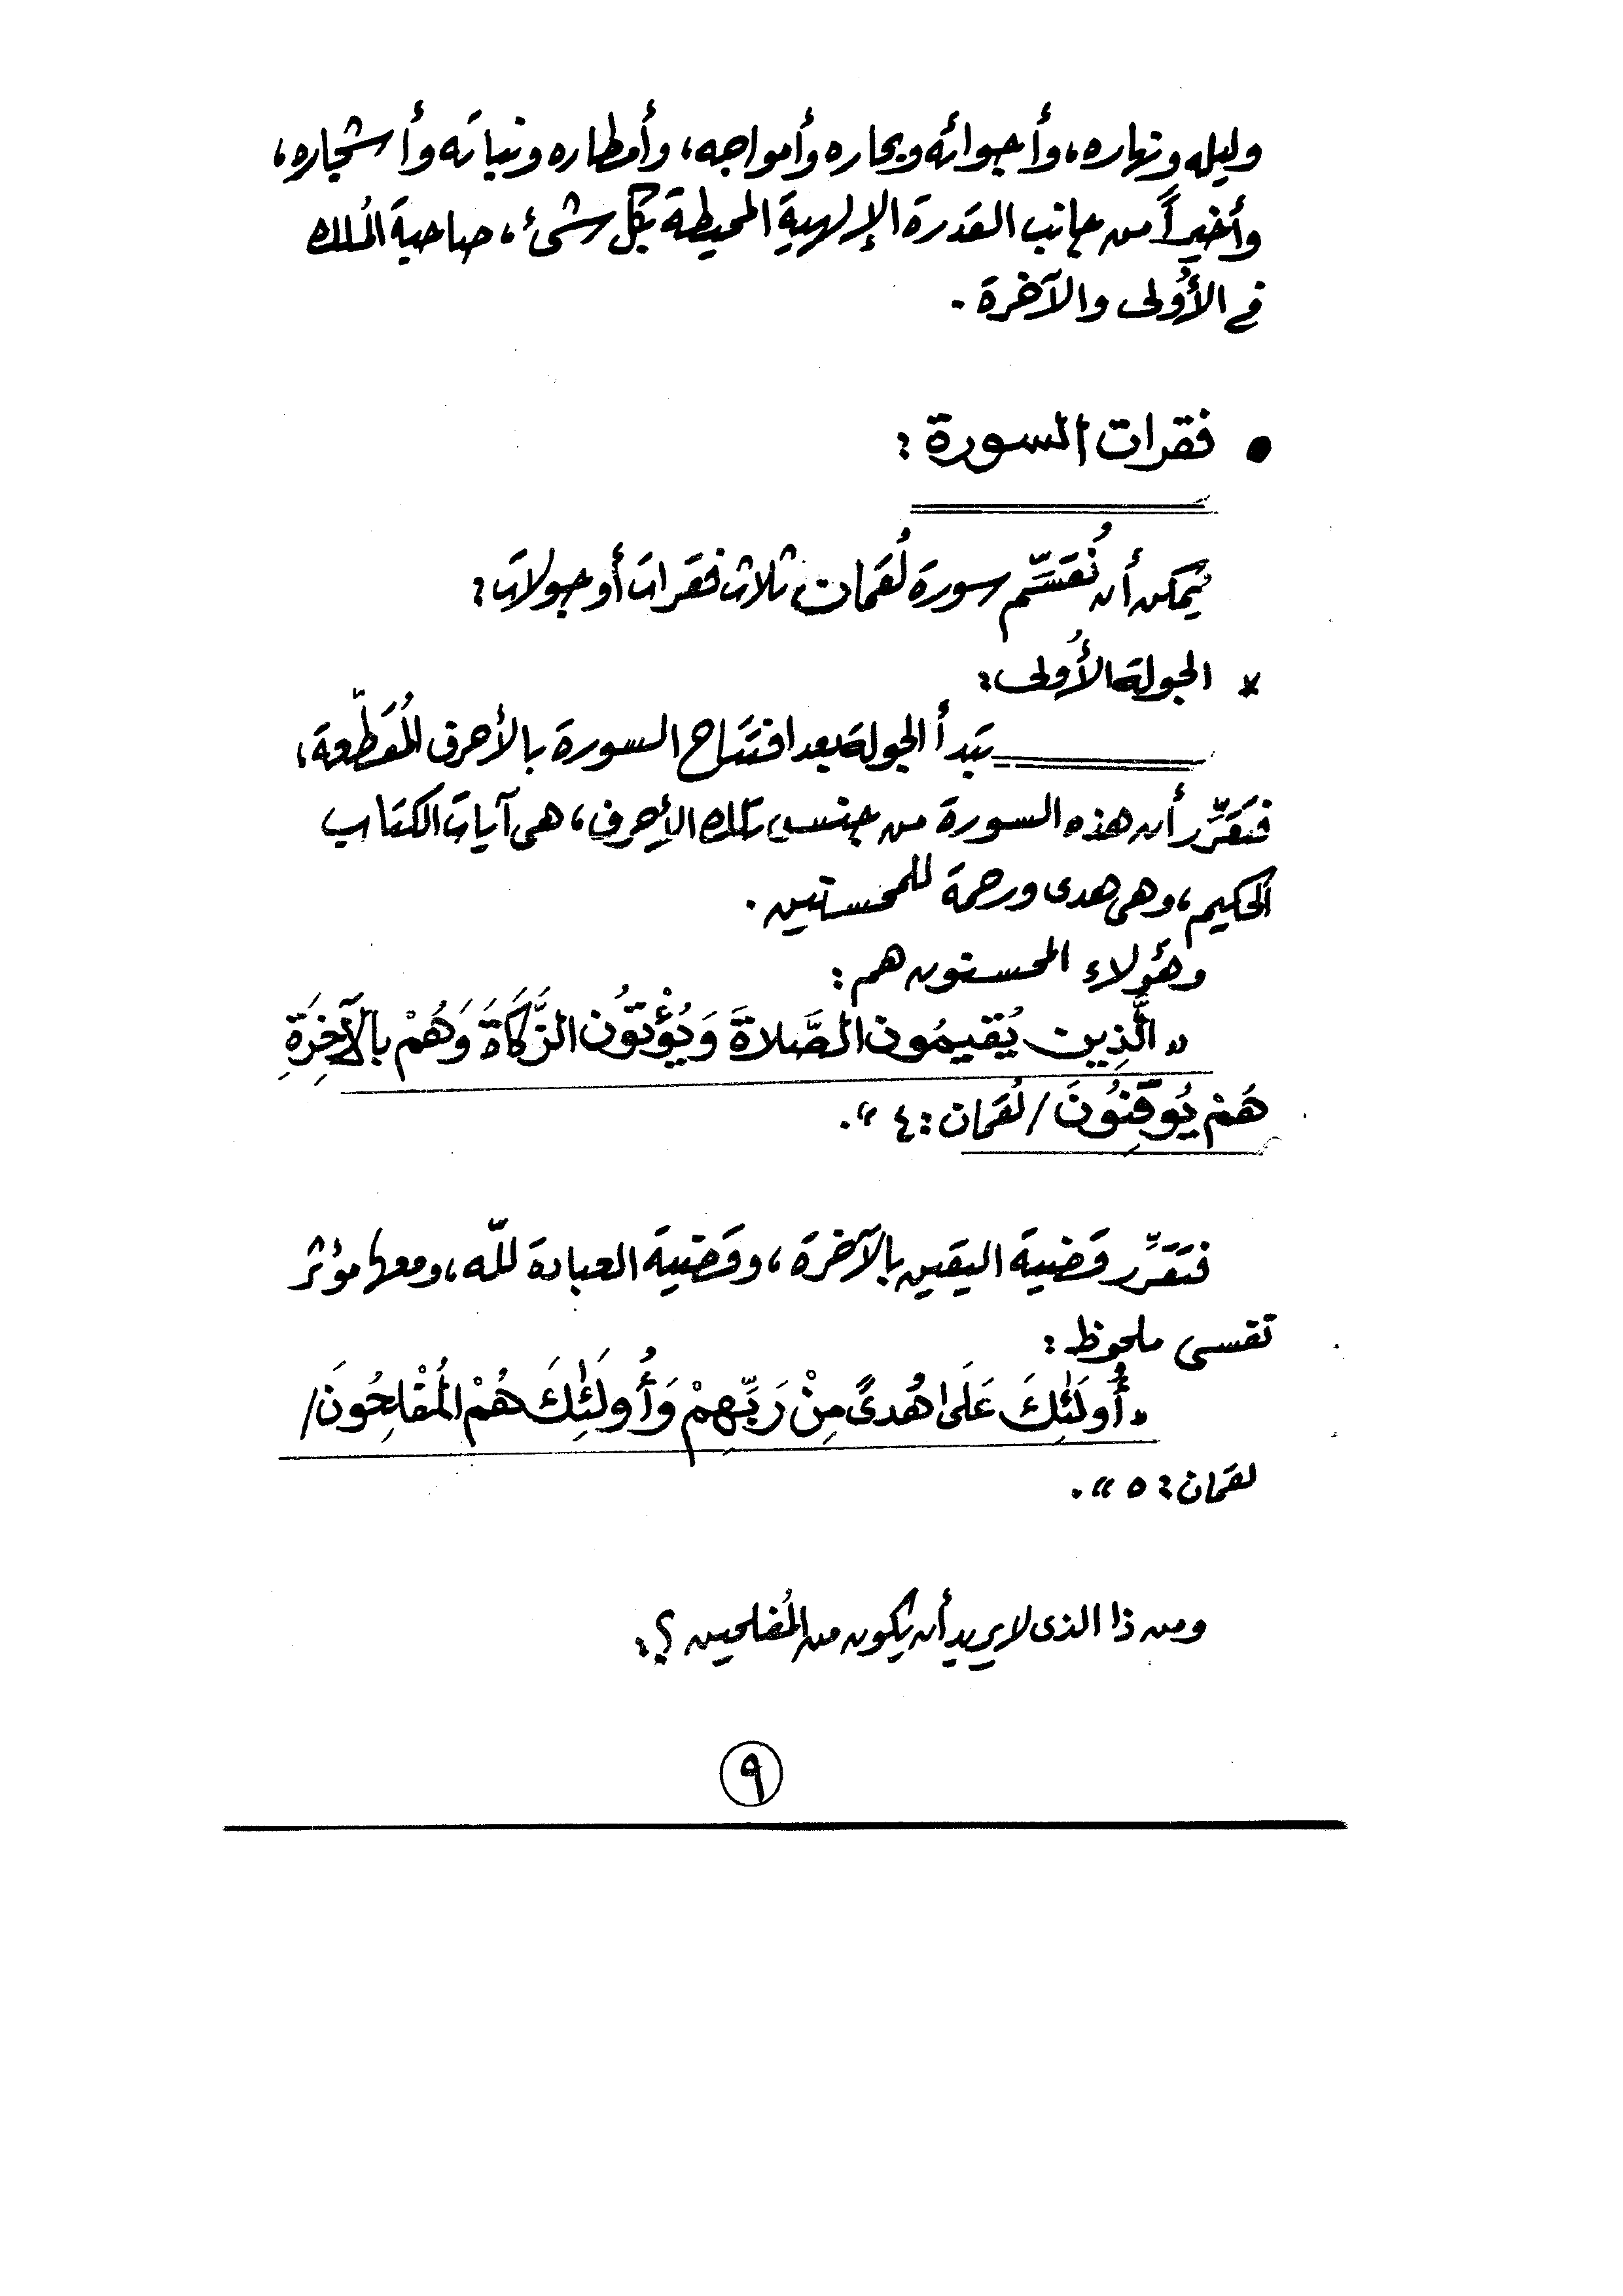 وليله ونهاره، وأجوائه وبحاره وأمواجه، وأمطاره ونباته وأشجاره،
وأخيراً من جانب القدرة الإلهية المحيطة بكل شئ، صاحبة المُلك
فى الأُولى والآخرة .
• فقرات السورة :
يُمكن أن نُقَسِّم سورة لُقمان ثلاث فقرات أو جولات :
* الجولة الأُولى :
تبدأ الجولة بعد افتتاح السورة بالأحرف المُقَطّعة،
فتَقرِّر أن هذه السورة من جنس تلك الأحرف، هى آيات الكتاب
الحكيم، وهى هدى ورحمة للمحسنين .
وهؤلاء المحسنون هم :
" الَّذِين يُقيمُون الصَّلاةَ وَيُؤْتُون الزَّكَاةَ وَهُمْ بالآخِرَةِ
هَمْ يُوقِنُونَ / لُقمان : ٤ " .
فتَقرِّر قضية اليقين بالآخرة، وقضية العبادة للّه، ومعها مؤثر
نفسى ملحوظ :
" أُولَئِكَ عَلَى هُدىً مِنْ رَبِّهِمْ وَأُولَئِكَ هُمْ المُفْلِحُونَ /
لقمان : ٥ " .
ومن ذا الذى لا يريد أن يكون من المُفلحين ؟ :
٩